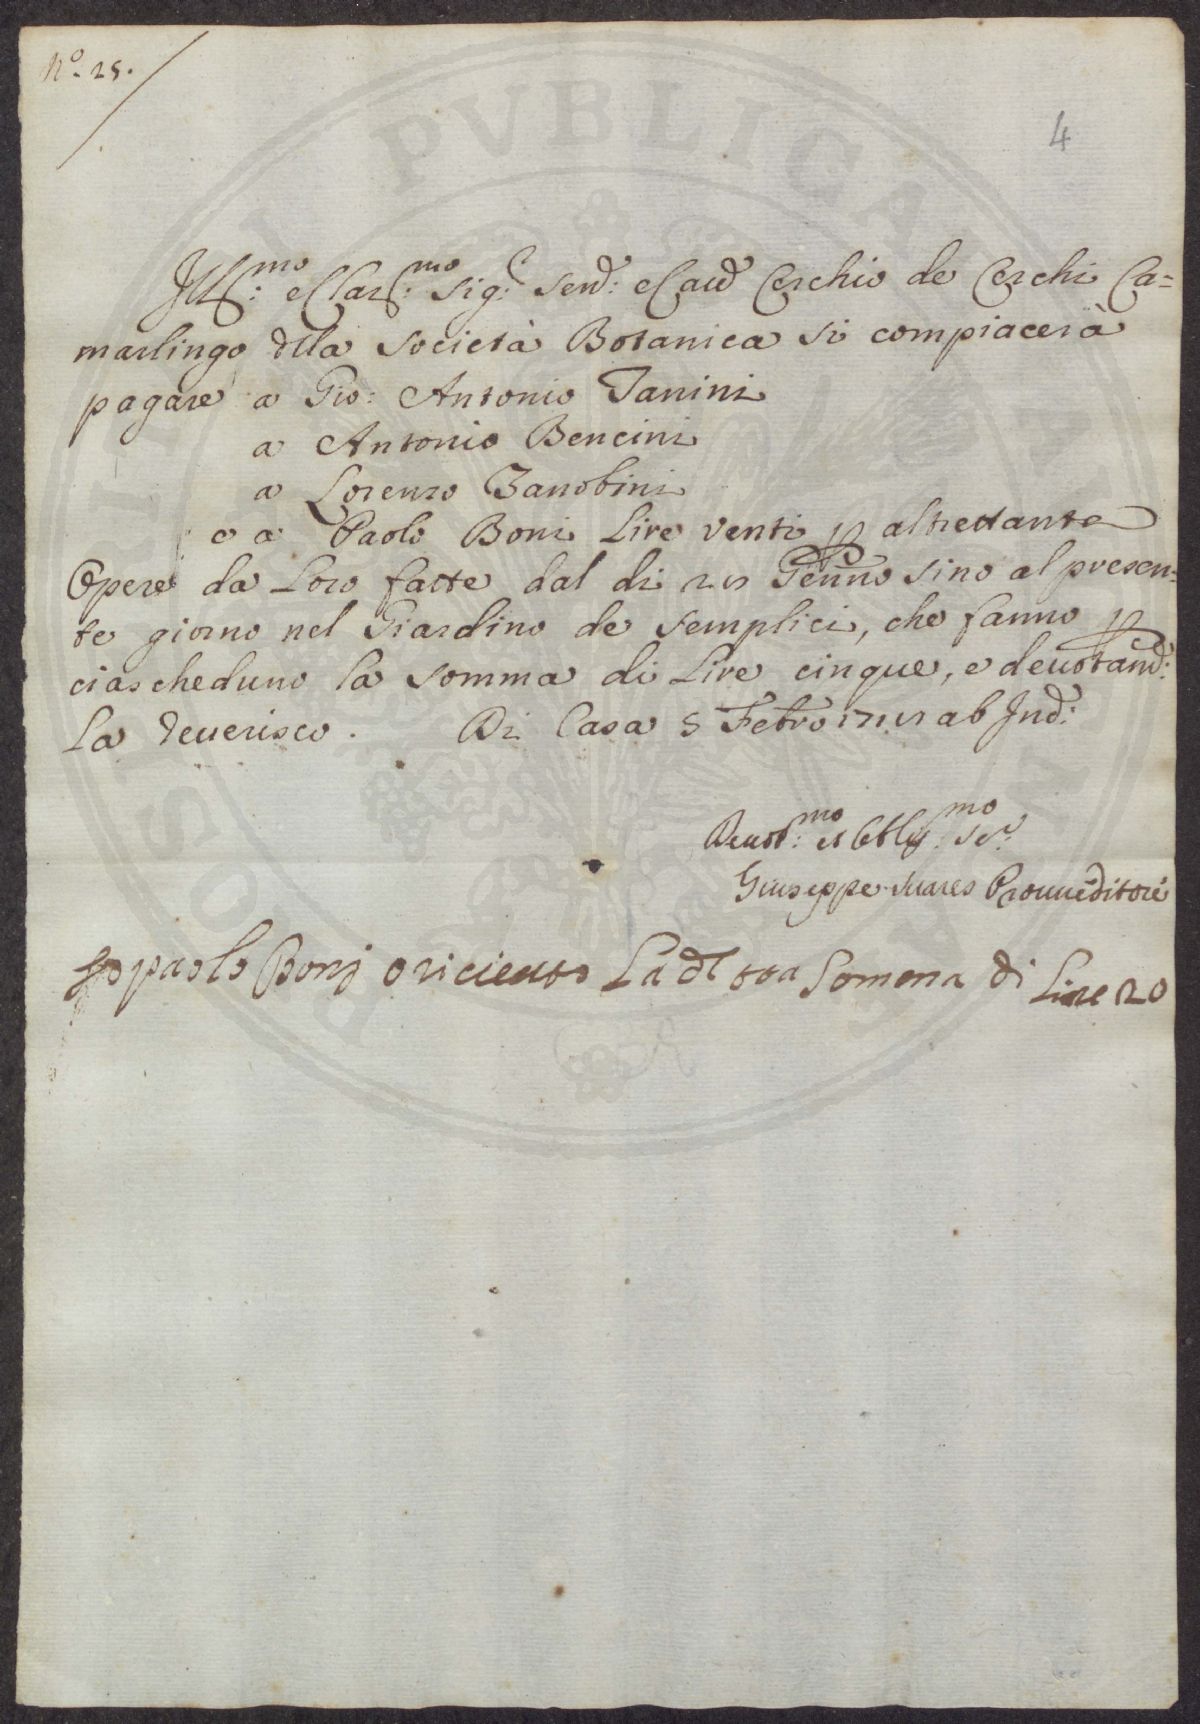 N.º 25.
4
Ill:mo e Clar:mo Sig:r Sen:e e Cav:e Cerchio de Cerchi Ca=
marlingo della Società Botanica si compiacerà
pagare a Gio: Antonio Tanini
a Antonio Bencini
a Lorenzo Zanobini
e a Paolo Boni Lire venti p altrettante
Opere da Loro fatte dal di Genn:o sino al presen=
te giorno nel Giardino de Semplici, che fanno p
ciascheduno la somma di Lire cinque, e devotam:e
La reverisco. Di Casa 5 Febro ab Ind:
Devot:mo et Obblig:mo Ser:
Giuseppe Suares Provveditore
Io paolo Bonj o riceuto La detta Somma di Lire 20